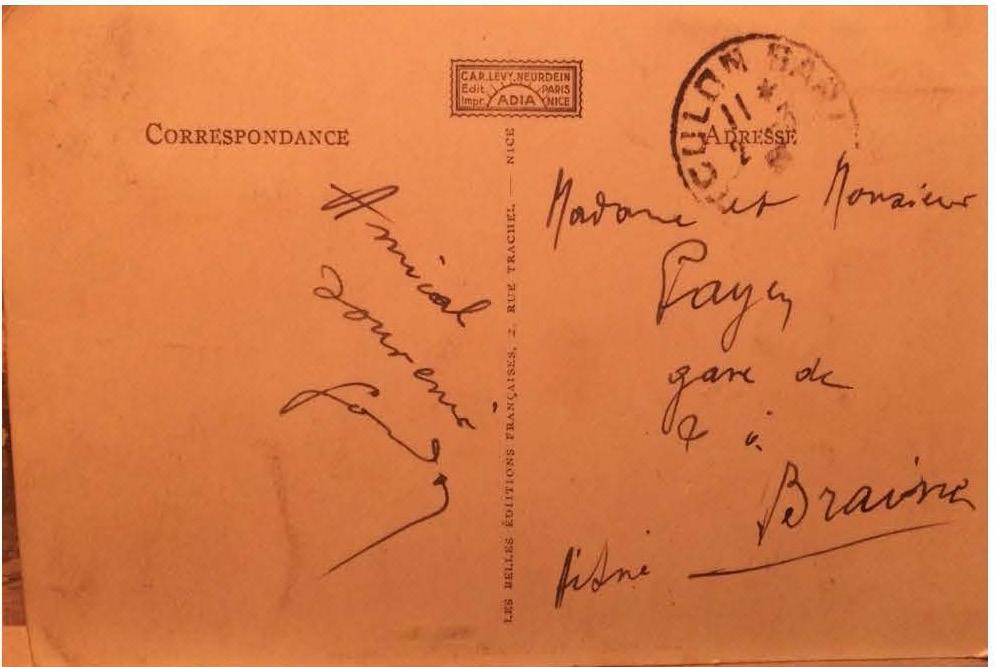 CAP. LEVY. NEURDEIN
Edit. PARIS
Impr. ADIA NICE
CORRESPONDANCE
Amical
souvenir
LES BELLES ÉDITIONS FRANÇAISES, 2, RUE TRACHEL. — NICE
TOULON
11
ADRESSE
Madame et Monsieur
Payen
gare de
à
Braisne
Aisne